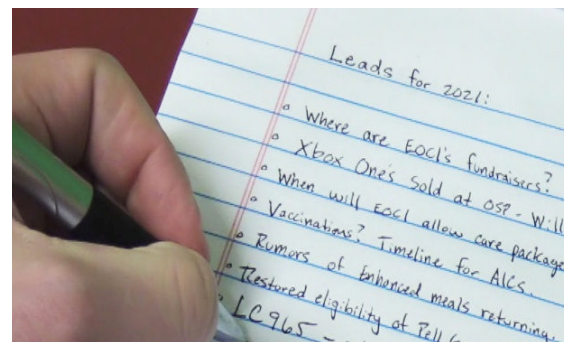 Leads for 2021:
Where are EOCI's fundraisers?
Xbox One's Sold at OSP - Will
When will EOCI allow care package
Vaccinations? Timeline for AICs.
Rumors of Enhanced meals returning.
Restored eligibility of Pell
LC965 -